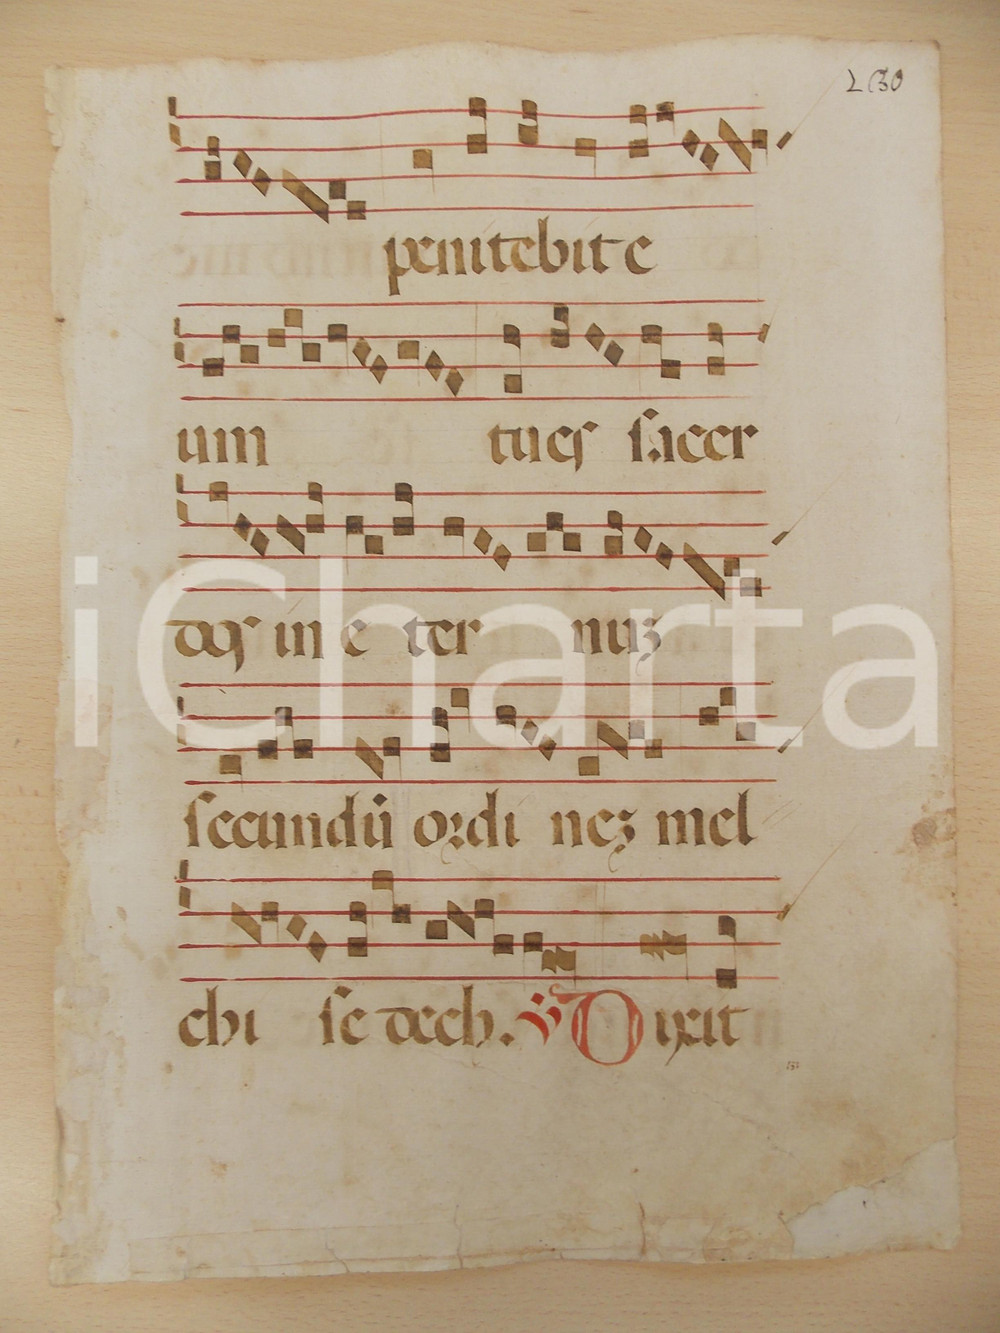 penitebite
um tu es sacer
dos in e ter nuz
secundū ordi nez mel
chi se dech. ℣ Dixit
iCharta